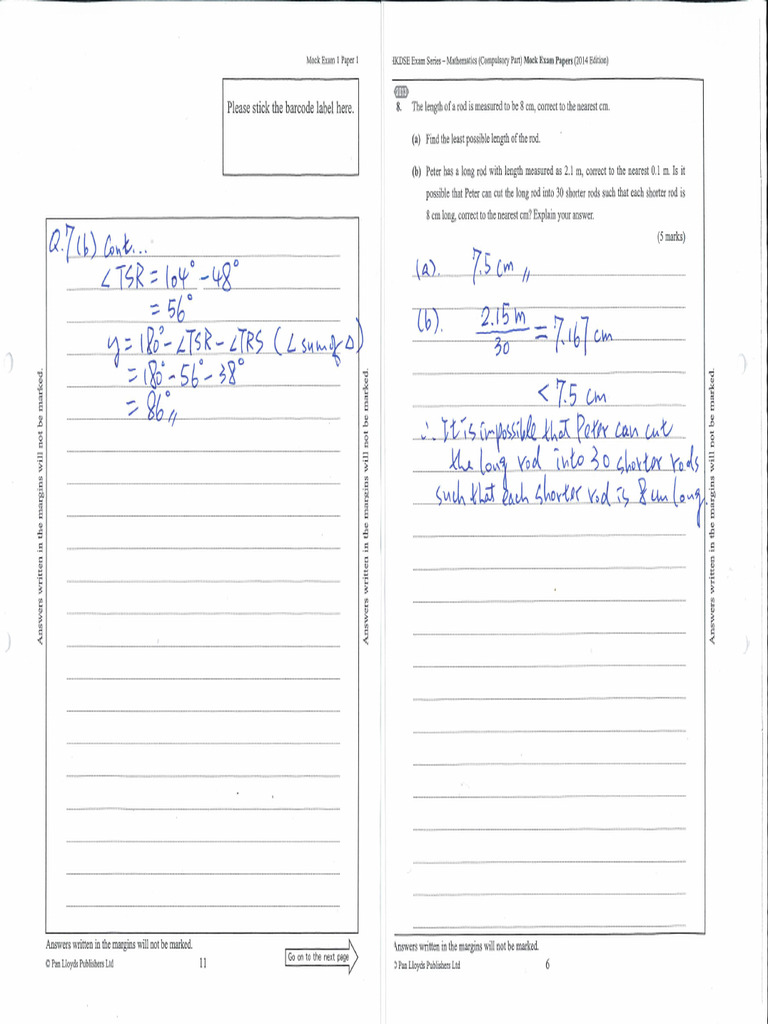 Mock Exam 1 Paper 1
Please stick the barcode label here.
Q.7(b) Cont...
∠TSR = 104° - 48°
= 56°
y = 180° - ∠TSR - ∠TRS (∠ sum of Δ)
= 180° - 56° - 38°
= 86° //
Answers written in the margins will not be marked.
Answers written in the margins will not be marked.
Answers written in the margins will not be marked.
© Pan Lloyds Publishers Ltd
11
Go on to the next page
HKDSE Exam Series – Mathematics (Compulsory Part) Mock Exam Papers (2014 Edition)
8. The length of a rod is measured to be 8 cm, correct to the nearest cm.
(a) Find the least possible length of the rod.
(b) Peter has a long rod with length measured as 2.1 m, correct to the nearest 0.1 m. Is it
possible that Peter can cut the long rod into 30 shorter rods such that each shorter rod is
8 cm long, correct to the nearest cm? Explain your answer.
(5 marks)
(a). 7.5 cm //
(b). 2.15 m / 30 = 7.167 cm
< 7.5 cm
∴ It is impossible that Peter can cut
the long rod into 30 shorter rods
such that each shorter rod is 8 cm long.
Answers written in the margins will not be marked.
Answers written in the margins will not be marked.
© Pan Lloyds Publishers Ltd
6